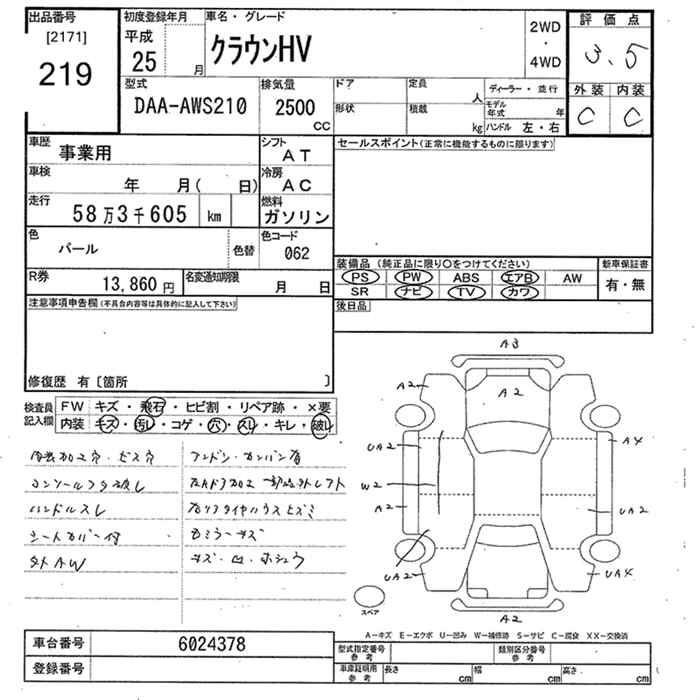 出品番号
[2171]
219
初度登録年月
平成
25
月
車名・グレード
クラウンHV
2WD
・
4WD
評価点
3.5
外装 内装
C C
型式
DAA-AWS210
排気量
2500
CC
ドア
定員
人
形状
積載
kg
ディーラー・並行
モデル年式
年
ハンドル 左・右
車歴
事業用
シフト
AT
車検
年 月( 日)
冷房
AC
走行
58万3千605 km
燃料
ガソリン
色
パール
色替
色コード
062
R券
13,860 円
名変通知期限
月 日
セールスポイント(正常に機能するものに限ります)
装備品 (純正品に限り○をつけてください)
PS PW ABS エアB AW
SR ナビ TV カワ
新車保証書
有・無
後日品
注意事項申告欄(不具合内容等は具体的に記入して下さい)
修復歴 有〔箇所 〕
検査員
記入欄
FW キズ・飛石・ヒビ割・リペア跡・×要
内装 キズ・汚レ・コゲ・穴・スレ・キレ・破レ
コンソールフタ破レ
ハンドルスレ
シートカバー付
社外AW
アンドン・カンバン有
カミラーキズ
キズ・凹・ホシュウ
A3
A2
A2
UA2
A4
W2
A2
UA2
UA2
UA4
A2
スペア
A-キズ E-エクボ U-凹み W-補修跡 S-サビ C-腐食 XX-交換済
車台番号
6024378
登録番号
型式指定番号
参考
類別区分番号
参考
車庫証明用
参考
長さ cm
幅 cm
高さ cm